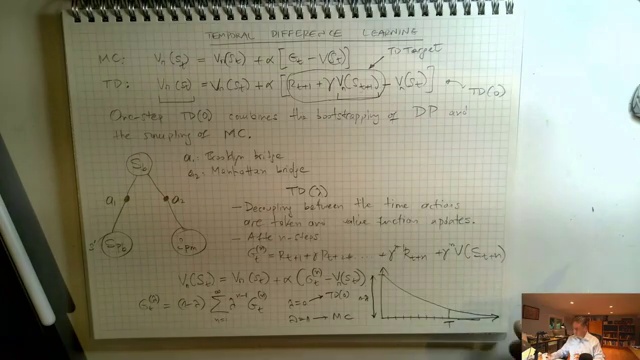 TEMPORAL DIFFERENCE LEARNING
MC: Vπ(St) = Vπ(St) + α [Gt - V(St)]
TD Target
TD: Vπ(St) = Vπ(St) + α [Rt+1 + γVπ(St+1) - Vπ(St)]
TD(0)
One-step TD(0) combines the bootstrapping of DP and
the sampling of MC.
a1: Brooklyn bridge
a2: Manhattan bridge
S
a1 a2
TD(λ)
- Decoupling between the time actions
are taken and value function updates.
- After n-steps
Gt(n) = Rt+1 + γ Rt+2 + ... + γ Rt+n + γn V(St+n)
Vπ(St) = Vπ(St) + α (Gt(n) - Vπ(St))
Gt(λ) = (1-λ) Σ λn-1 Gt(n)
n=1
λ=0 → TD(0)
λ=1 → MC
1-λ
T